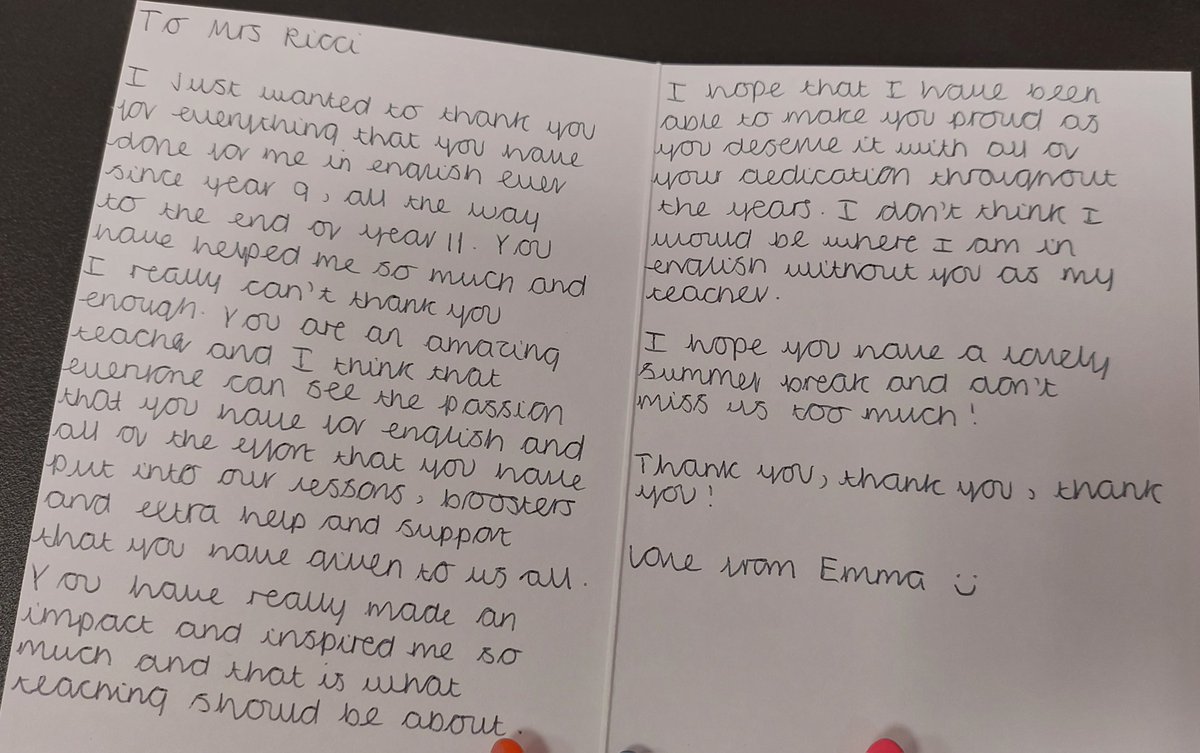 To Mrs Ricci
I just wanted to thank you
for everything that you have
done for me in english ever
since year 9, all the way
to the end of year 11. You
have helped me so much and
I really can't thank you
enough. You are an amazing
teacher and I think that
everyone can see the passion
that you have for english and
all of the effort that you have
put into our lessons, boosters
and extra help and support
that you have given to us all.
You have really made an
impact and inspired me so
much and that is what
teaching should be about.
I hope that I have been
able to make you proud as
you deserve it with all of
your dedication throughout
the years. I don't think I
would be where I am in
english without you as my
teacher.
I hope you have a lovely
summer break and don't
miss us too much!
Thank you, thank you, thank
you!
Love from Emma :)